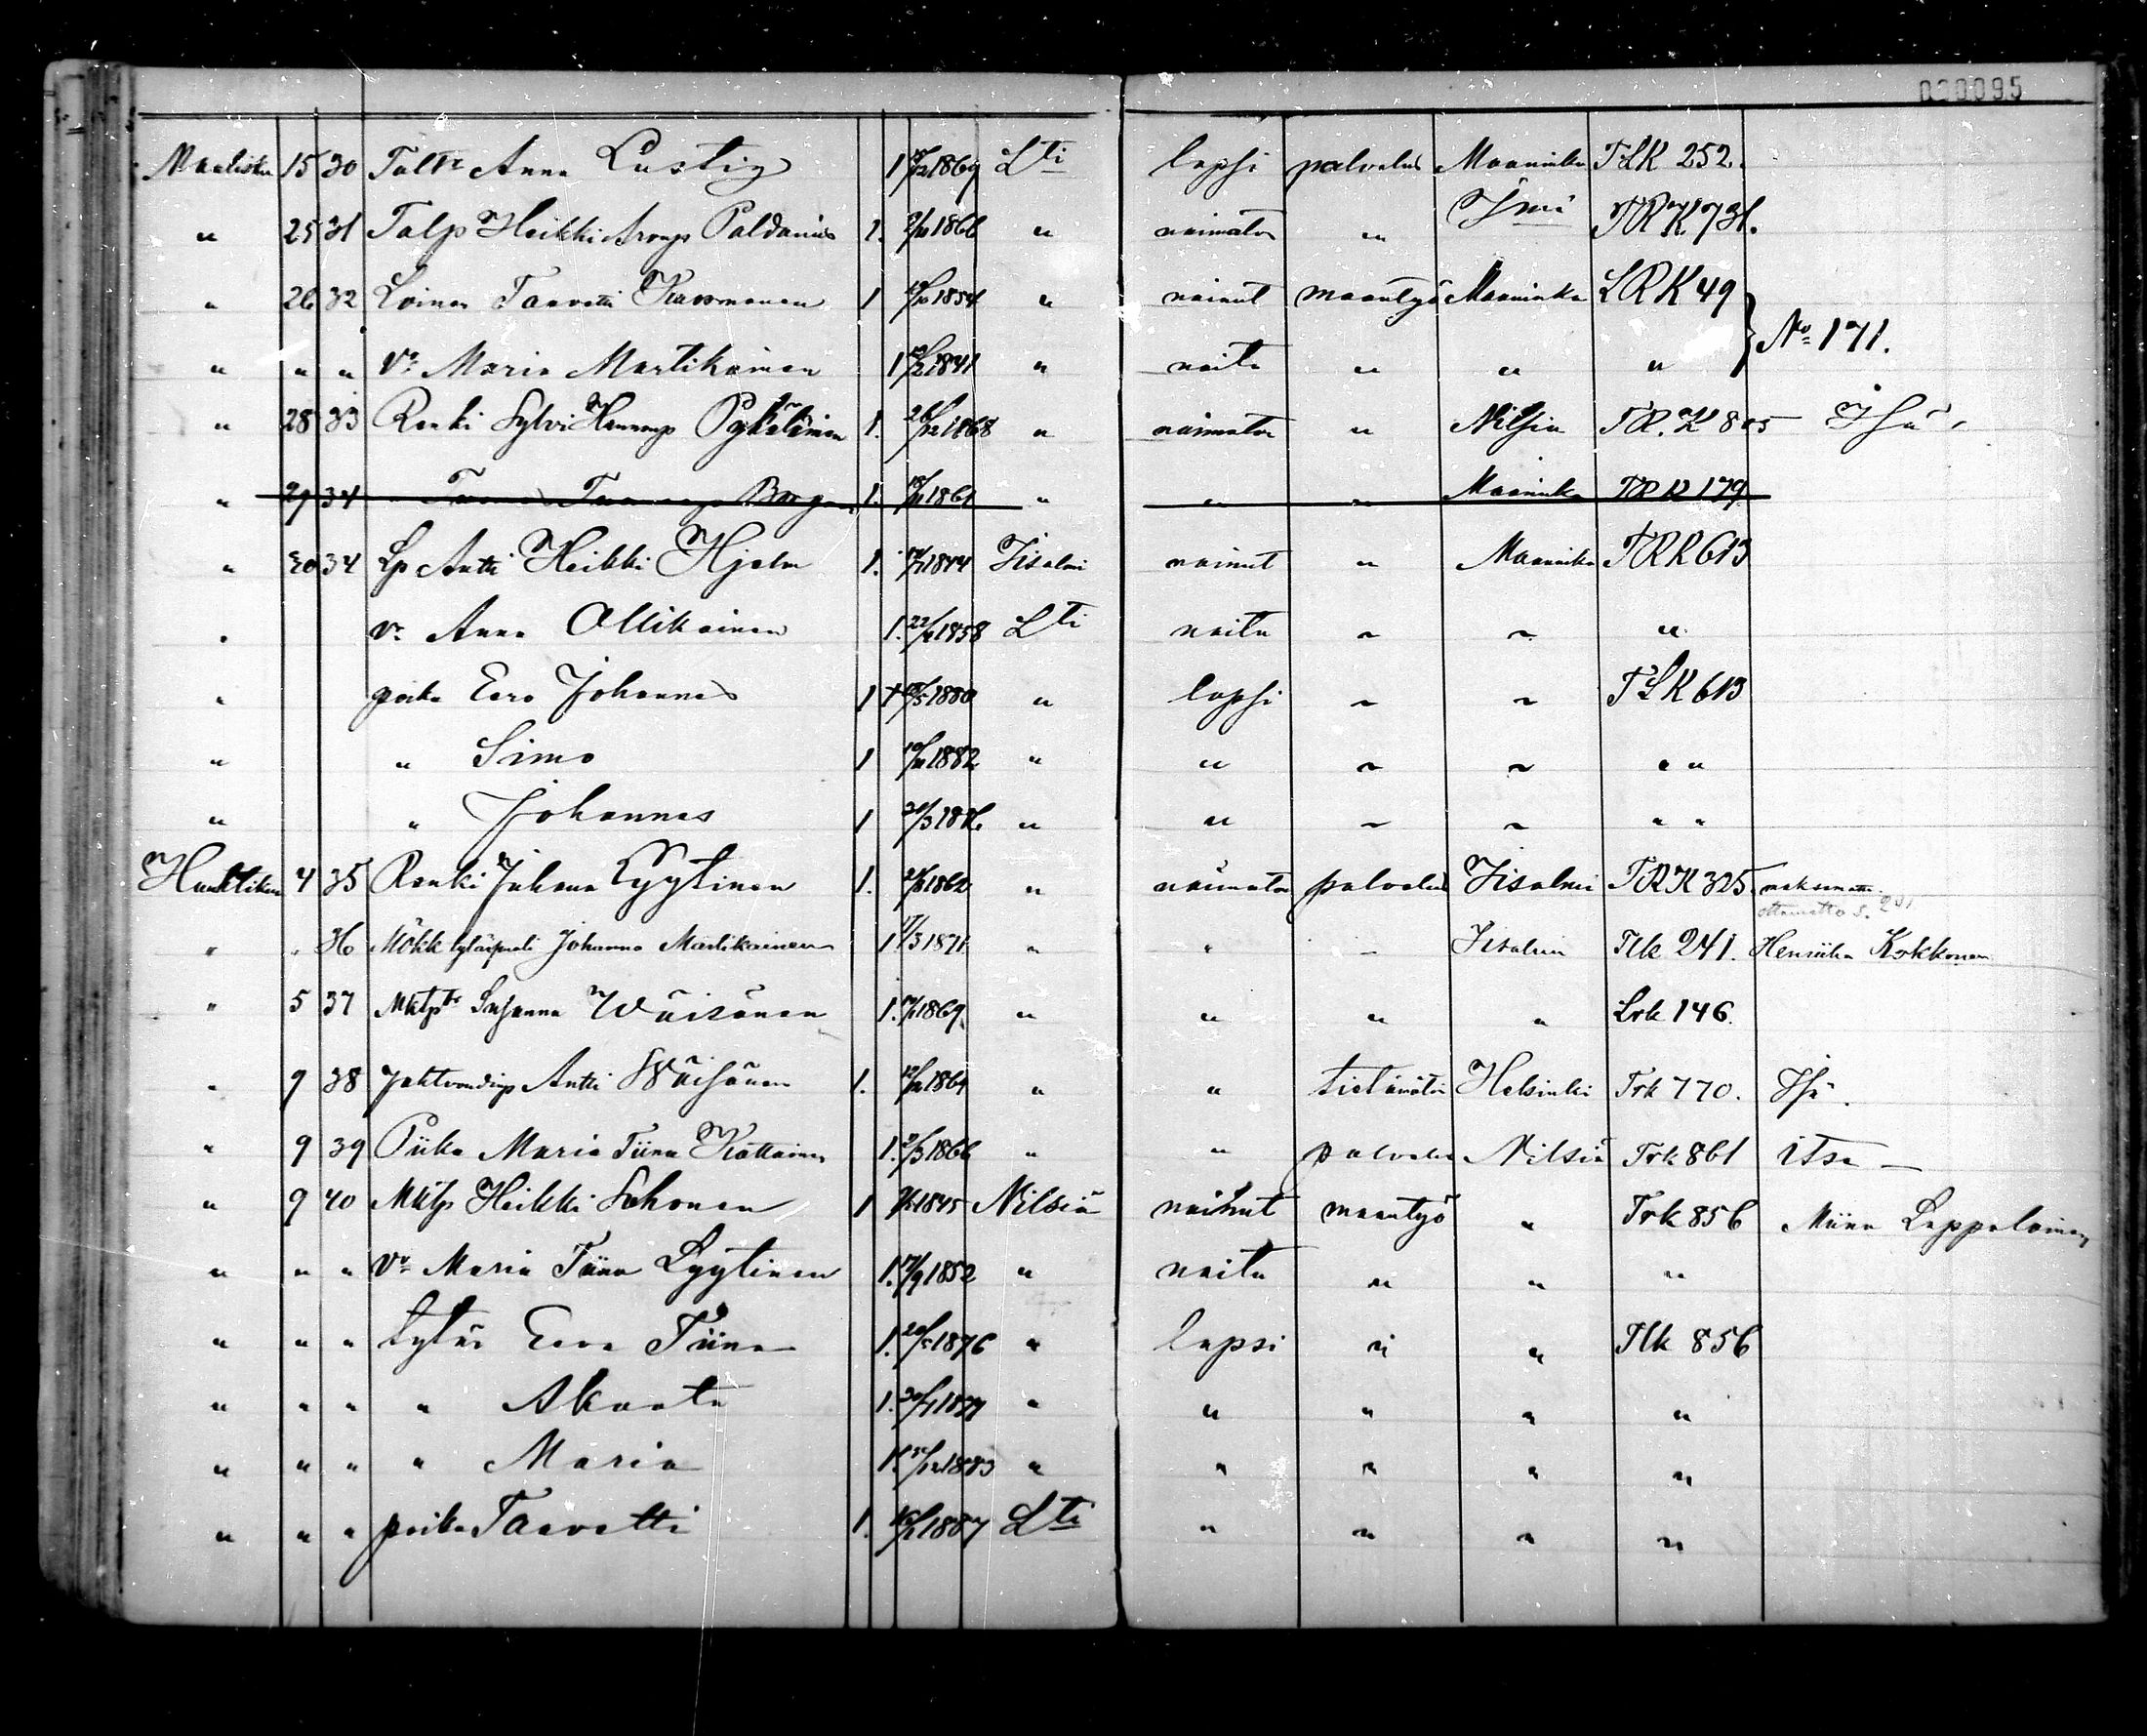 000095
Maalisku 15 30 Taltr Anna Lustig 1 1869 Lti lapsi palvelus Maaninka TLK 252.
" 25 31 Talp Heikki Aronp Paldanius 1. 1866 " naimaton " Jmi TRK 731.
" 26 32 Loinen Taavetti Kaosmanen 1 1854 " nainut maantyö Maaninka LRK 49
" " " Vo Maria Martikainen 1 1841 " naitu " " " No 171.
" 28 33 Renki Sylvi Hannunp Pykäläinen 1. 26/12 1868 " naimaton " Nilsia TR.K 805 Itsä
" 29 34 1. 1861 " " " Maaninka TRK 179
" 30 34 Lp Antti Heikki Hjelm 1. 1844 Iisalmi nainut " Maaninka TRK 613
" vo Anna Ollikainen 1. 1858 Lti naitu " " "
" poika Eero Johannes 1 1880 " lapsi " " TLK 613
" " Simo 1 1882 " " " " " "
" " Johannes 1 " " " " " "
Huhtikuu 4 35 Renki Juhana Lyytinen 1. 1862 " naimaton palvelus Iisalmi TRK 325 maksamatta
ottamatta s. 291
" " 36 Mökk tytärpuoli Johanna Martikainen 1 1871 " " – Iisalmi Tlk 241. Henriika Kokkonen
" 5 37 Mktptr Susanna Wäisänen 1. 1869 " " " " Lrk 146.
" 9 38 Antti Wäisänen 1. 1864 " " tietämätön Helsinki Trk 770. Itsä.
" 9 39 Piika Maria Tiina Kottainen 1. 1866 " " palvelus Nilsiä Trk 861 itse –
" 9 40 Mktp Heikki Sahonen 1 1845 Nilsiä nainut maantyö " Trk 856 Miina Lappalainen
" " " Vo Maria Tiina Lyytinen 1. 17/9 1852 " naitu " " "
" " " tytär Eeva Tiina 1. 1876 " lapsi " " Tlk 856
" " " " Akaata 1. 1879 " " " " "
" " " " Maria 1. 1883 " " " " "
" " " poika Taavetti 1. 1887 Lti " " " "